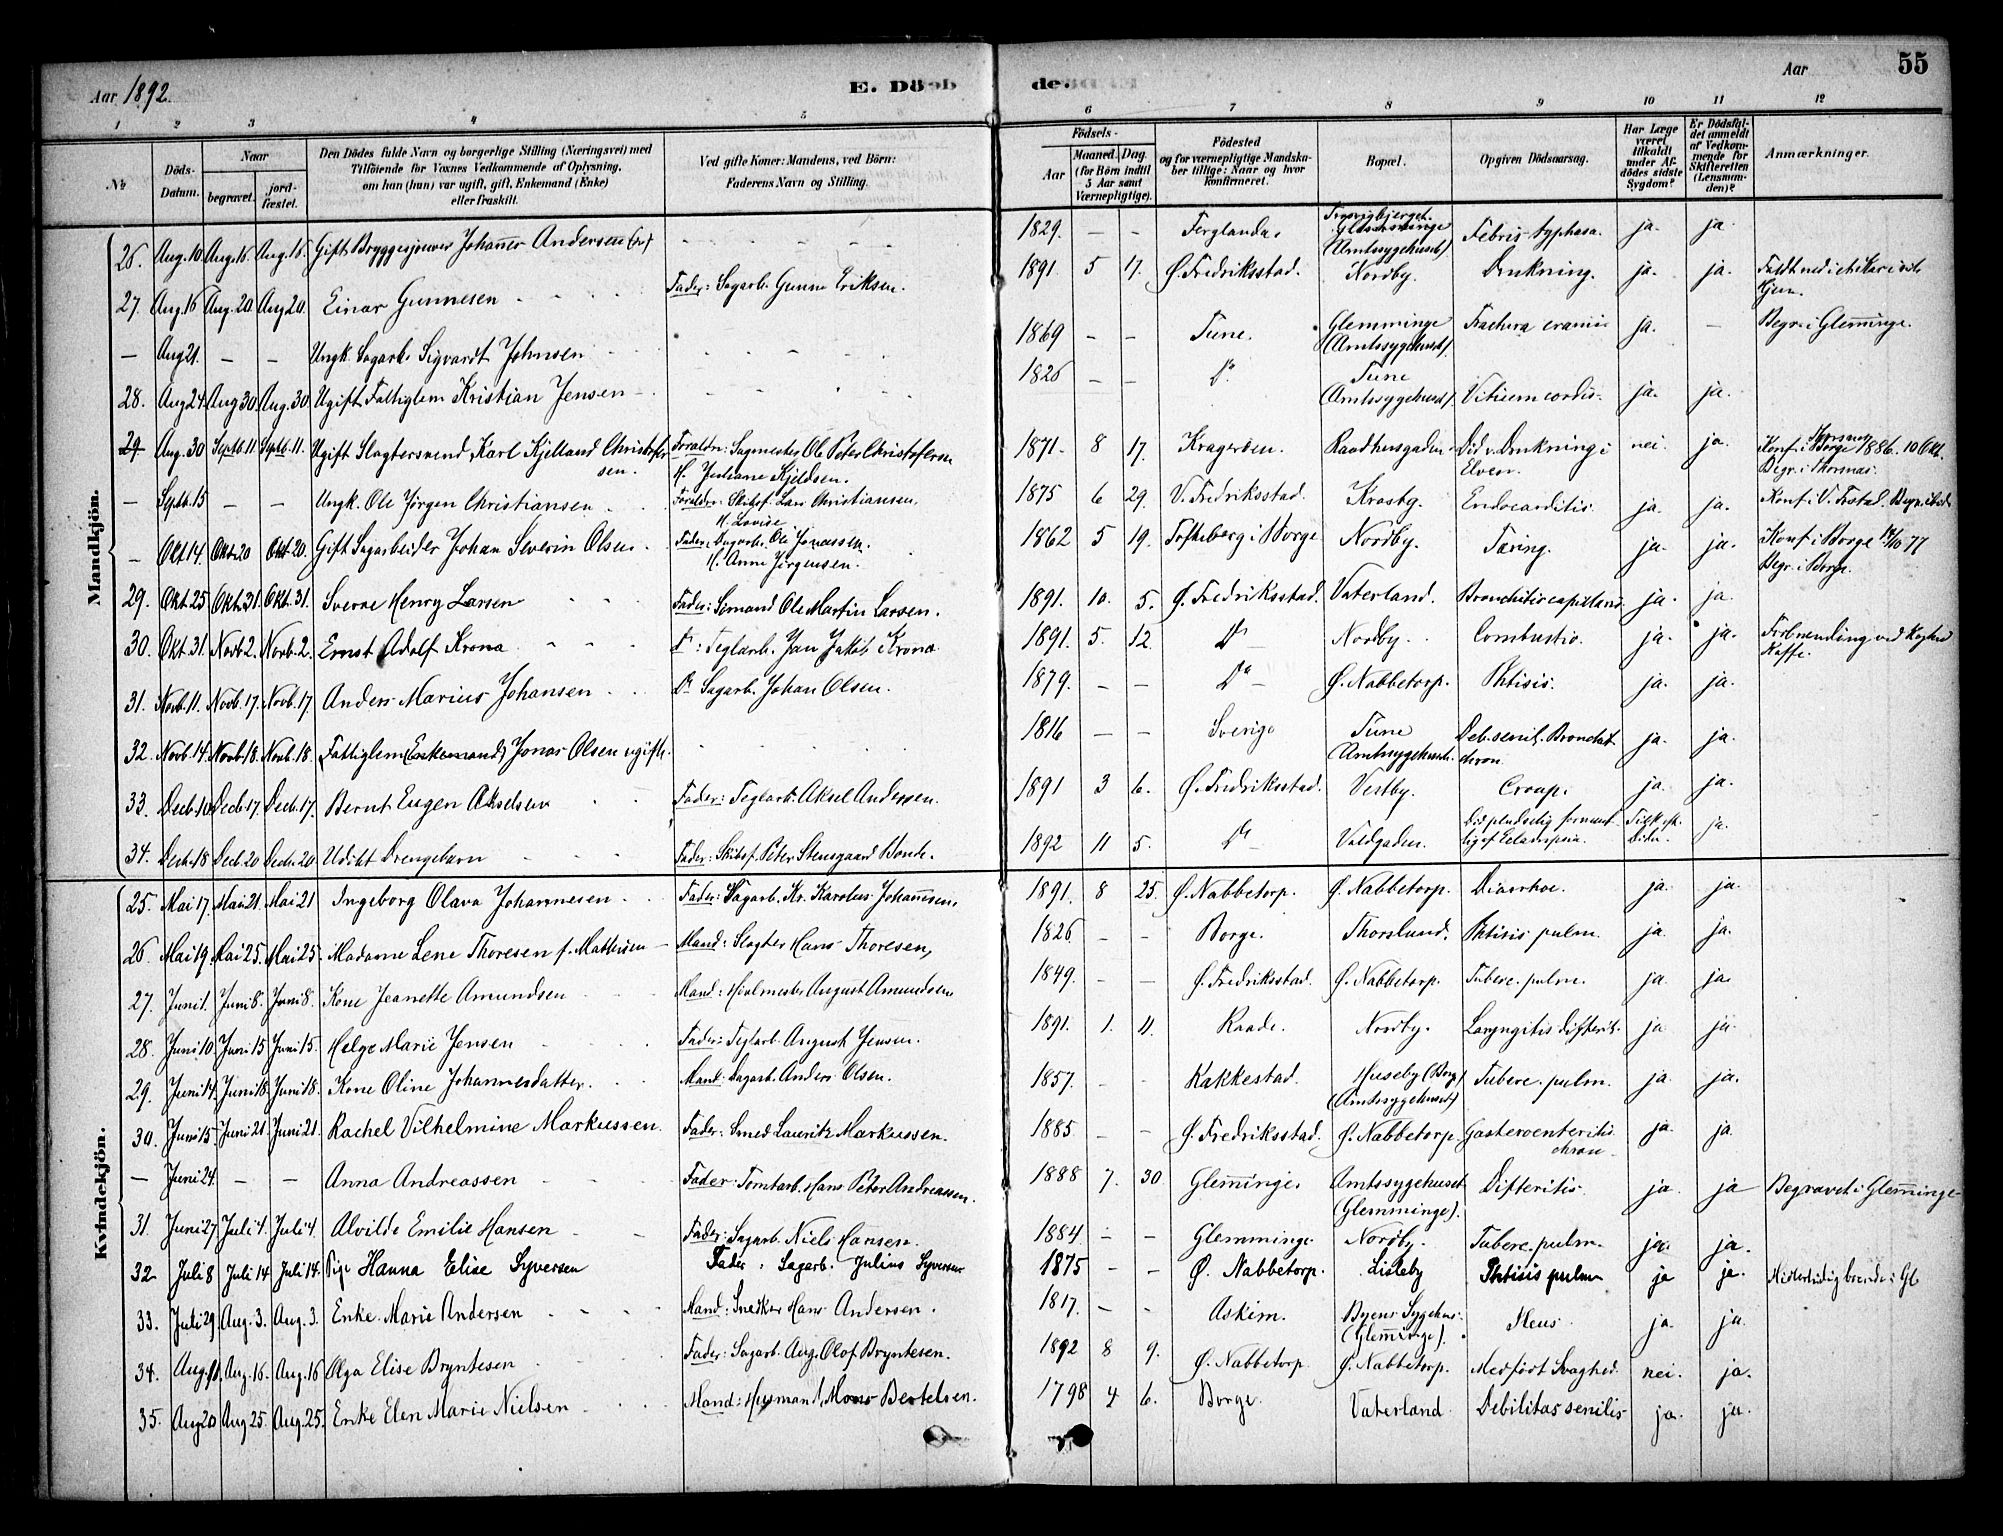 Aar 1892.
E. Döde.
Aar
55
1 2 3 4 5 6 7 8 9 10 11 12
№
Döds-Datum.
Naar
begravet.
jordfæstet.
Den Dödes fulde Navn og borgerlige Stilling (Næringsvei) med
Tilföiende for Voxnes Vedkommende af Oplysning,
om han (hun) var ugift, gift, Enkemand (Enke)
eller fraskilt.
Ved gifte Koner: Mandens, ved Börn:
Faderens Navn og Stilling.
Födsels-
Aar
Maaned. Dag.
(for Börn indtil
5 Aar samt
Værnepligtige).
Födested
og for værnepligtige Mandska-
ber tillige: Naar og hvor
konfirmeret.
Bopæl.
Opgiven Dödsaarsag.
Har Læge
været
tilkaldt
under Af-
dödes sidste
Sygdom?
Er Dödsfal-
det anmeldt
af Vedkom-
mende for
Skifteretten
(Lensman-
den)?
Anmærkninger.
Mandkjön.
26. Aug. 10 Aug. 16 Aug. 16. Gift Bryggesjouer Johannes Andersen 1829. – – Glemminge (Amtssygehuset) Febris typhosa. ja. ja.
27. Aug. 16 Aug. 20 Aug. 20. Einar Gunnesen Fader: Sagarb. Gunne Eriksen. 1891. 5 17. Ø. Fredriksstad. Nordby. Drukning. ja. ja.
– Aug 21. – – Ungk. Sagarb. Sigvardt Johnsen 1869 – – Tune. Glemminge (Amtssygehuset). Fractura cranii ja. – Begr. i Glem̄inge.
28. Aug 24 Aug 30. Aug. 30 Ugift Fattiglem Kristian Jensen 1826 – – Do. Tune (Amtssygehuset). Vitium cordis. ja. ja.
29 Aug. 30 Septb. 11. Septb. 11. Ugift Slagtersvend Karl Kjelland Christoffersen. Forældre: Sagmester Ole Peter Christofersen H. Juliane Kjeldsen. 1871. 8 17. Kragerøen. Raadhusgaden Död v. Drukning i Elven. nei. ja. Konf. i Borge 1886. 10 Okt. Begr. i Thorsnæs.
– Septb. 15 – – Ungk. Ole Jörgen Christiansen Forældre: Skibsf. Lars Christiansen. H. Lovise 1875 6 29. V. Fredriksstad. Kraakg. Endocarditis. ja. ja. Konf. i V. Frstad.
– Okt 14. Okt 20 Okt 20. Gift Sagarbeider Johan Severin Olsen. Fader: Sagarb. Ole Jonassen. H. Anne Jörgensen. 1862 5 19. Borge Nordby. Tæring. ja. ja. Konf. i Borge 14/10 77 Begr. i Borge.
29. Okt 25 Okt. 31. Okt. 31. Sverre Henry Larsen Fader: Sömand Ole Martin Larsen. 1891. 10. 5. Ø. Fredriksstad. Vaterland. Bronchitis capillaris. ja. ja.
30. Okt. 31. Novb. 2. Novb. 2. Ernst Adolf Krona Do: Teglarb. Jan Jakob Krona. 1891. 5. 12. Do Nordby. Combustio. ja. ja. Forbrænding ved Kaffe.
31. Novb. 11. Novb. 17. Novb. 17. Anders Marius Johansen Do Sagarb. Johan Olsen. 1879. – – Do Ø. Nabbetorp. Phtisis. ja. ja.
32. Novb. 14. Novb. 18. Novb. 18. Fattiglem (Enkemand) Jonas Olsen ugift. 1816 – – Sverige Tune Amtssygehuset. Deb. senil. Bronchit. chron. ja. ja.
33. Decb. 10 Decb. 17. Decb. 17. Bernt Eugen Akselsen Fader: Teglarb. Aksel Andersen. 1891 3 6. Ø. Fredriksstad. Vestby. Croup. ja. ja.
34. Decb. 18 Decb. 20 Decb. 20 Udöbt Drengebarn Fader: Skibsf. Peter Stensgaard Bonde. 1892 11 5. Do Voldgaden. ja.
Kvindekjön.
25. Mai 17. Mai 21. Mai 21 Ingeborg Olava Johannesen Fader: Sagarb. Kr. Karolus Johan̄esen. 1891. 8 25. Ø. Nabbetorp. Ø. Nabbetorp. Diarrhoe. ja. ja.
26 Mai 19. Mai 25. Mai 25. Madame Lene Thoresen f. Mathesen Mand: Slagter Hans Thoresen, 1826 – – Borge. Thorslund. Phtisis pulm. ja. ja.
27. Juni 1. Juni 8. Juni 8. Kone Jeanette Amundsen Mand: Hjulmester August Amundsen 1849. – – Ø. Fredriksstad. Ø. Nabbetorp. Tuberc. pulm. ja ja.
28. Juni 10. Juni 15 Juni 15. Helge Marie Jensen Fader: Teglarb. August Jensen. 1891. 1. 11. Raade. Nordby. Laryngitis difterit. ja ja.
29. Juni 14. Juni 18. Juni 18. Kone Oline Johannesdatter. Mand: Sagarb. Anders Olsen. 1857. – – Rakkestad. Huseby (Borge) (Amtssygehuset) Tuberc. pulm. ja. ja.
30. Juni 15 Juni 21. Juni 21. Rachel Vilhelmine Markussen. Fader: Smed Lauritz Markussen. 1885. – – Ø. Fredriksstad. Ø. Nabbetorp. Gasteroenteritis chron. ja. ja.
– Juni 24. – – Anna Andreassen Fader: Tomtarb. Hans Peter Andreassen. 1888 7. 30. Glem̄inge. Amtssygehuset (Glemminge). Difteritis. ja. ja Begravet i Glem̄inge
31. Juni 27. Juli 4. Juli 4. Alvilde Emilie Hansen Fader: Sagarb. Niels Hansen. 1884. – – Glemminge. Nordby. Tuberc. pulm. ja. ja.
32. Juli 8 Juli 14. Juli 14. Pige Hanna Elise Syversen Fader: Sagarb. Julius Syversen 1875 – – Ø. Nabbetorp. Lisleby Phtisis pulm ja ja.
33. Juli 29 Aug. 3. Aug. 3. Enke Marie Andersen Mand: Snedker Hans Andersen. 1817. – – Askim. Byens Sygehus. (Glem̄inge). Ileus. ja. ja.
34. Aug. 11. Aug. 16. Aug. 16 Olga Elise Bryntesen Fader: Sagarb. Aug. Olof Bryntesen. 1892 8 9. Ø. Nabbetorp. Ø. Nabbetorp. Medfødt Svaghed. nei. ja.
35. Aug 20 Aug 25. Aug. 25. Enke Elen Marie Nielsen Mand: Husmand Mons Bertelsen. 1798 4 6. Borge. Vaterland. Debilitas senilis ja. ja.